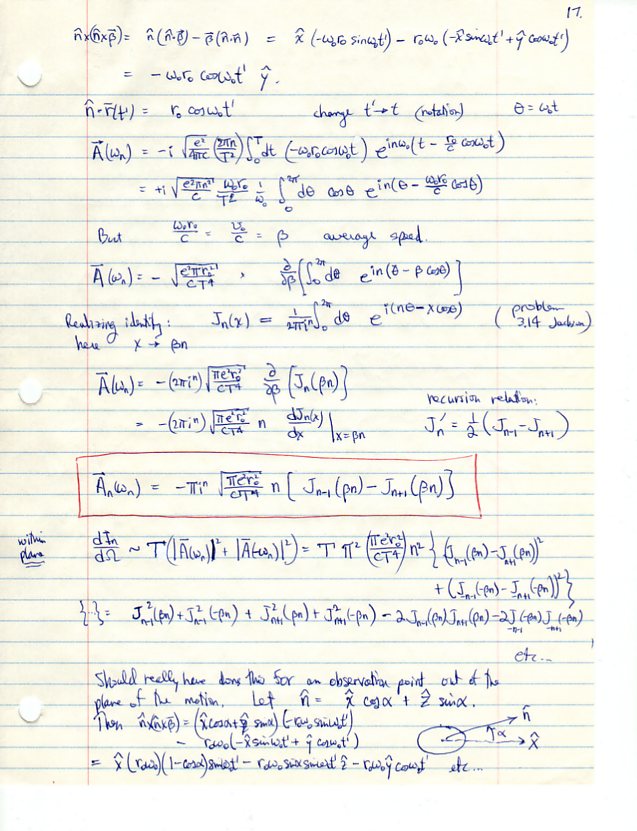 17.
n̂×(n̂×β̄) = n̂(n̂·β̄) − β̄(n̂·n̂) = x̂(−ω₀r₀ sinω₀t') − r₀ω₀(−x̂ sinω₀t' + ŷ cosω₀t')
= −ω₀r₀ cosω₀t' ŷ.
n̂·r̄(t') = r₀ cosω₀t' change t'→t (notation) θ = ω₀t
A⃗(ωₙ) = −i √(e²/4πc) (2πn/T²) ∫₀ᵀ dt (−ω₀r₀ cosω₀t) e^{inω₀(t − r₀/c cosω₀t)}
= +i √(e²πn²/c) ω₀r₀/T² 1/ω₀ ∫₀^{2π} dθ cosθ e^{in(θ − ω₀r₀/c cosθ)}
But ω₀r₀/c = v₀/c = β average speed.
A⃗(ωₙ) = −√(e²πr₀²/cT⁴) · ∂/∂β [∫₀^{2π} dθ e^{in(θ − β cosθ)}]
Realizing identity: Jₙ(x) = 1/2πiⁿ ∫₀^{2π} dθ e^{i(nθ − x cosθ)} (problem 3.14 Jackson)
here x → βn
A⃗(ωₙ) = −(2πiⁿ) √(πe²r₀²/cT⁴) ∂/∂β [Jₙ(βn)]
recursion relation:
= −(2πiⁿ) √(πe²r₀²/cT⁴) n dJₙ(x)/dx |x=βn Jₙ' = ½(Jₙ₋₁ − Jₙ₊₁)
A⃗ₙ(ωₙ) = −πiⁿ √(πe²r₀²/cT⁴) n [Jₙ₋₁(βn) − Jₙ₊₁(βn)]
within plane dIₙ/dΩ ~ T(|A⃗(ωₙ)|² + |A⃗(−ωₙ)|²) = T π² (πe²r₀²/cT⁴) n² {(Jₙ₋₁(βn) − Jₙ₊₁(βn))²
+ (J₋ₙ₋₁(−βn) − J₋ₙ₊₁(−βn))²}
{...} = J²ₙ₋₁(βn) + J²ₙ₋₁(−βn) + J²ₙ₊₁(βn) + J²ₙ₊₁(−βn) − 2Jₙ₋₁(βn)Jₙ₊₁(βn) − 2J₋ₙ₋₁(−βn)J₋ₙ₊₁(−βn)
etc...
Should really have done this for an observation point out of the
plane of the motion. Let n̂ = x̂ cosα + ẑ sinα.
Then n̂×(n̂×β̄) = (x̂cosα + ẑ sinα)(−r₀ω₀ sinω₀t')
− r₀ω₀(−x̂ sinω₀t' + ŷ cosω₀t')
n̂
α
x̂
= x̂(r₀ω₀)(1−cosα)sinω₀t' − r₀ω₀ sinα sinω₀t' ẑ − r₀ω₀ŷ cosω₀t' etc...